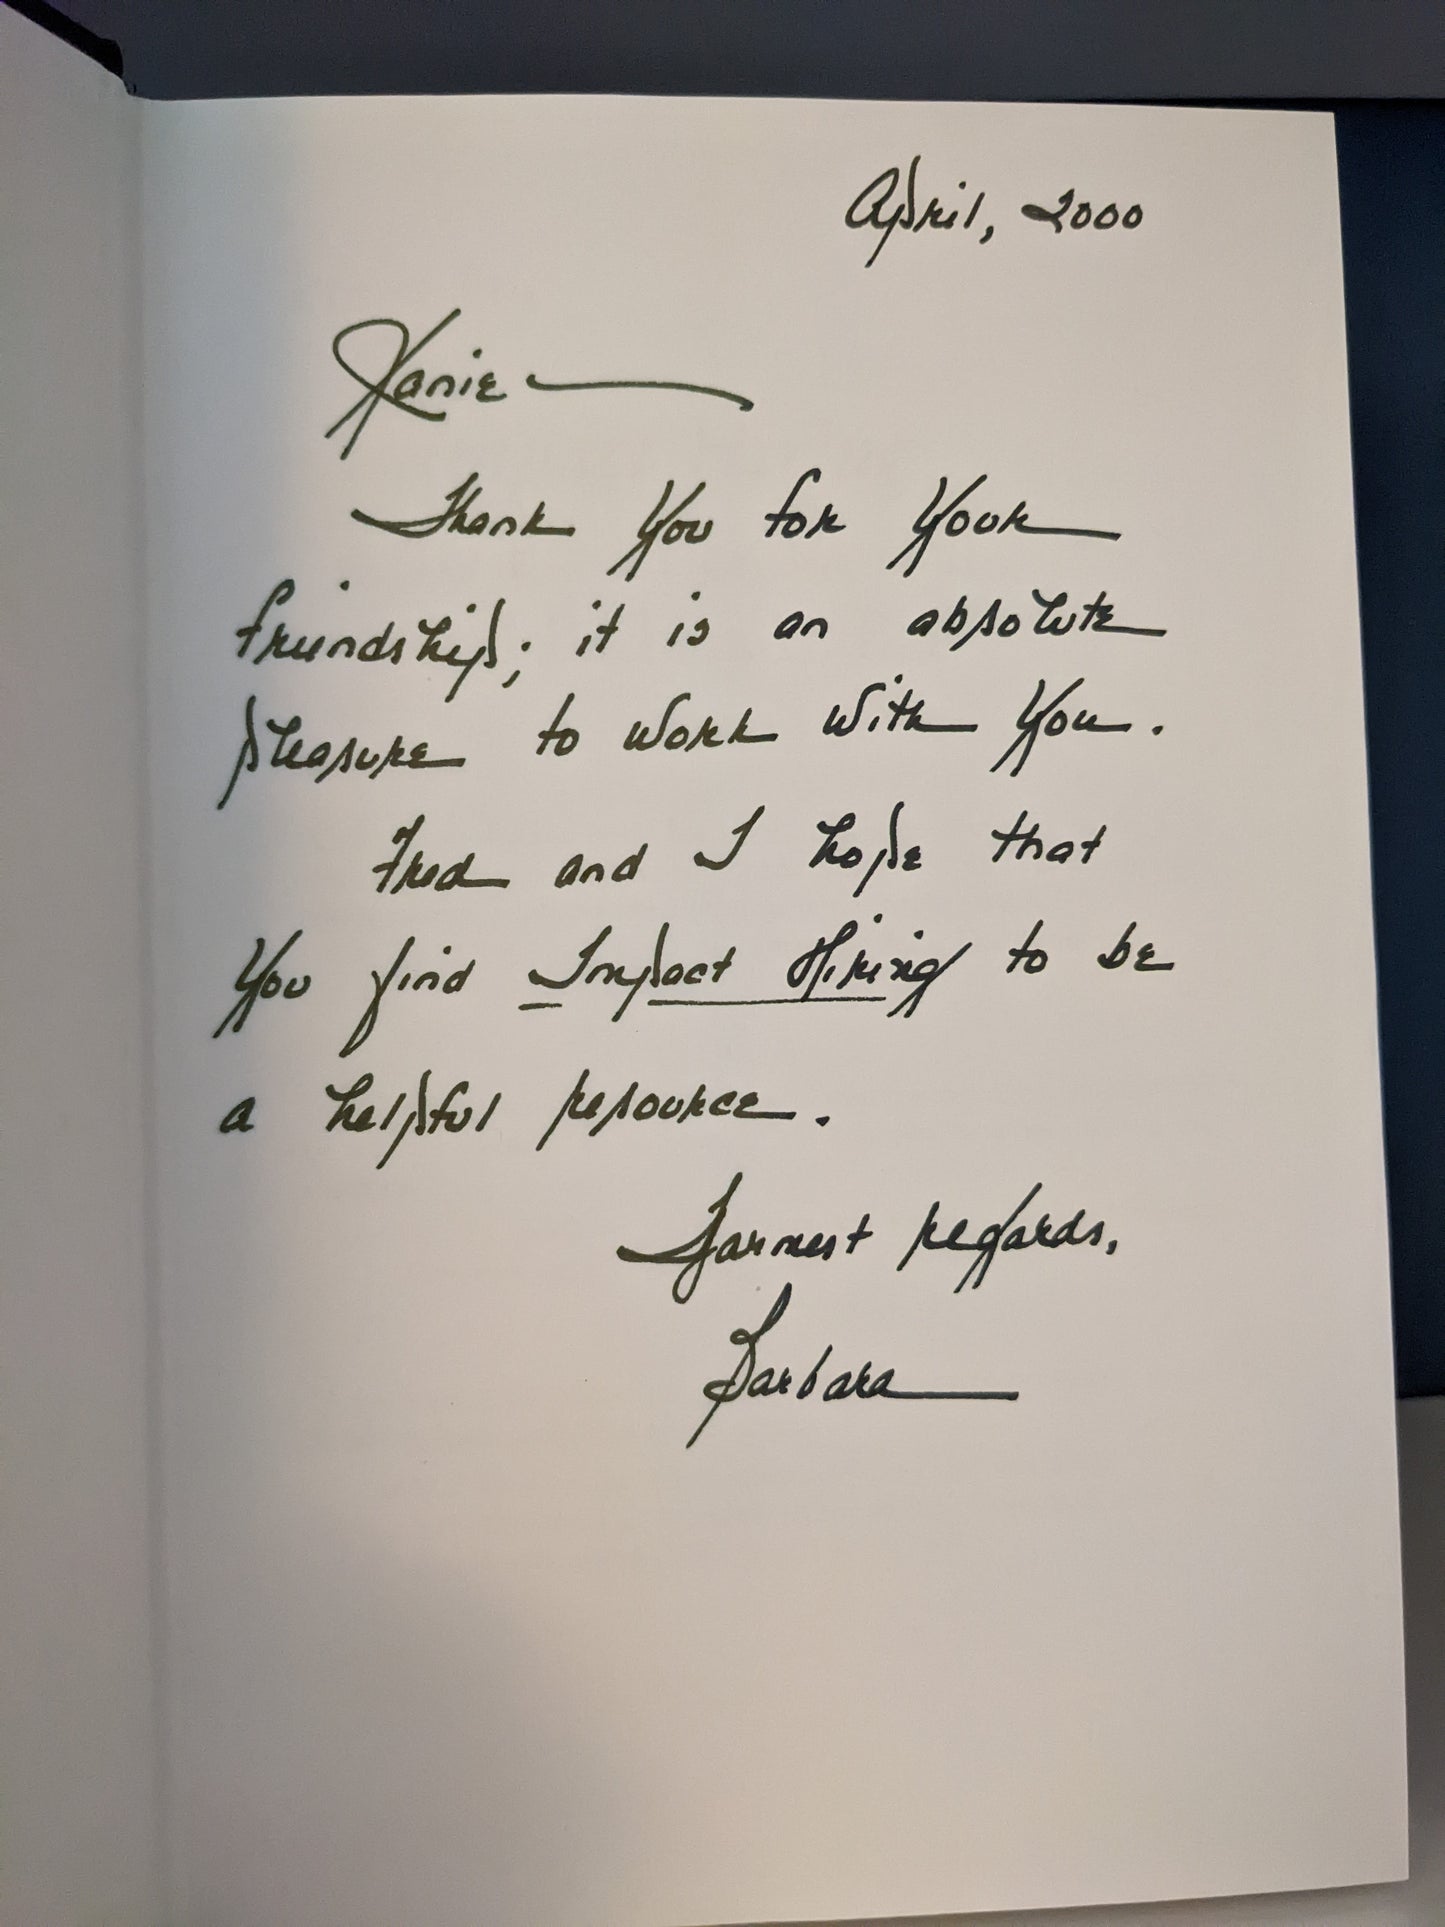 April, 2000
Kanie —
Thank You for Your
friendship; it is an absolute
pleasure to work with You.
Fred and I hope that
You find Impact Hiring to be
a helpful resource.
Warmest regards,
Barbara